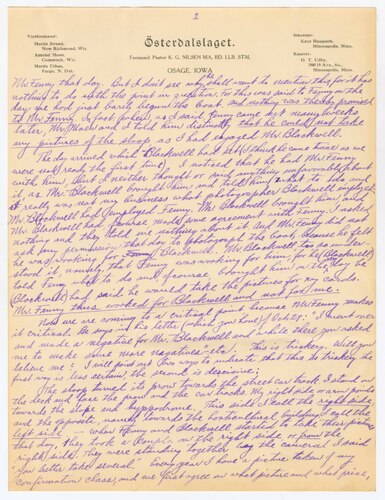 2
Viceformænd:
Martin Strand,
New Richmond, Wis.
Amund Moen,
Comstock, Wis.
Martin Ulbus,
Fargo, N. Dak.
Österdalslaget.
Formand: Pastor K. G. NILSEN MA, BD, LLB, STM.
OSAGE, IOWA
Sekretær:
Minneapolis, Minn.
Kasserer:
Minneapolis, Minn.
Mr. Fenny that day. But I don't see why I shall want to mention this for it has
nothing to do with the point in question. For this was said to Fenny on the
day we had just barely begun the boat and nothing was thereby promised
to Mr. Fenny, as I said Fenny came but many weeks
later, Mr. and I told him distinctly that he could not take
my pictures of the sloop as I had engaged Mr. Blackwell.
The day arrived which Blackwell had set (I think he came twice as we
were not ready the first time) I noticed that he had Mr. Fenny
with him, but I neither thought or said anything unfavorably about
it as Mr. Blackwell bought him and told him what to do and
it really was not my business what photographer Blackwell employed.
Mr. Blackwell had employed Fenny. Mr. Blackwell bought him and
Mr. Blackwell had of course made some agreement with Fenny, I said
nothing and they told me nothing about it and Mr. Fenny did not
ask my permission that day to photograph the boat because he felt
he was working for Blackwell. Mr. Blackwell too so under-
stood it namely, that Fenny was working for him, for he (Blackwell)
told Fenny what to do and of course bought him on the day he
(Blackwell) had said he would take the pictures for my cards.
Mr. Fenny thus worked for Blackwell and not for me.
Now we are coming to a critical point because Mr. Fenny makes
it critical. He says in his letter (which you have) of Oct. 29: "I went over
and made a negative for Mr. Blackwell and while there you asked
me to make some more negatives etc." This is trickery. Will you
believe me? I will point out two ways to indicate that this is trickery, the
first way is less certain, the second is decisive:
The sloop turned its prow towards the street car track. I stand on
the deck and face the prow and the car tracks. My right side or arm points
towards the slope and hyppodrome. This side I call the right side,
and the opposite, namely towards the horticultural building I call the
left side. – When Fenny and Blackwell started to take their pictures
that day, they took a couple on the right side or from the
right side. They were standing together by the camera. I said
"You better take several." Every year I have a picture taken of my
confirmation class, and we first agree on what picture and what price,